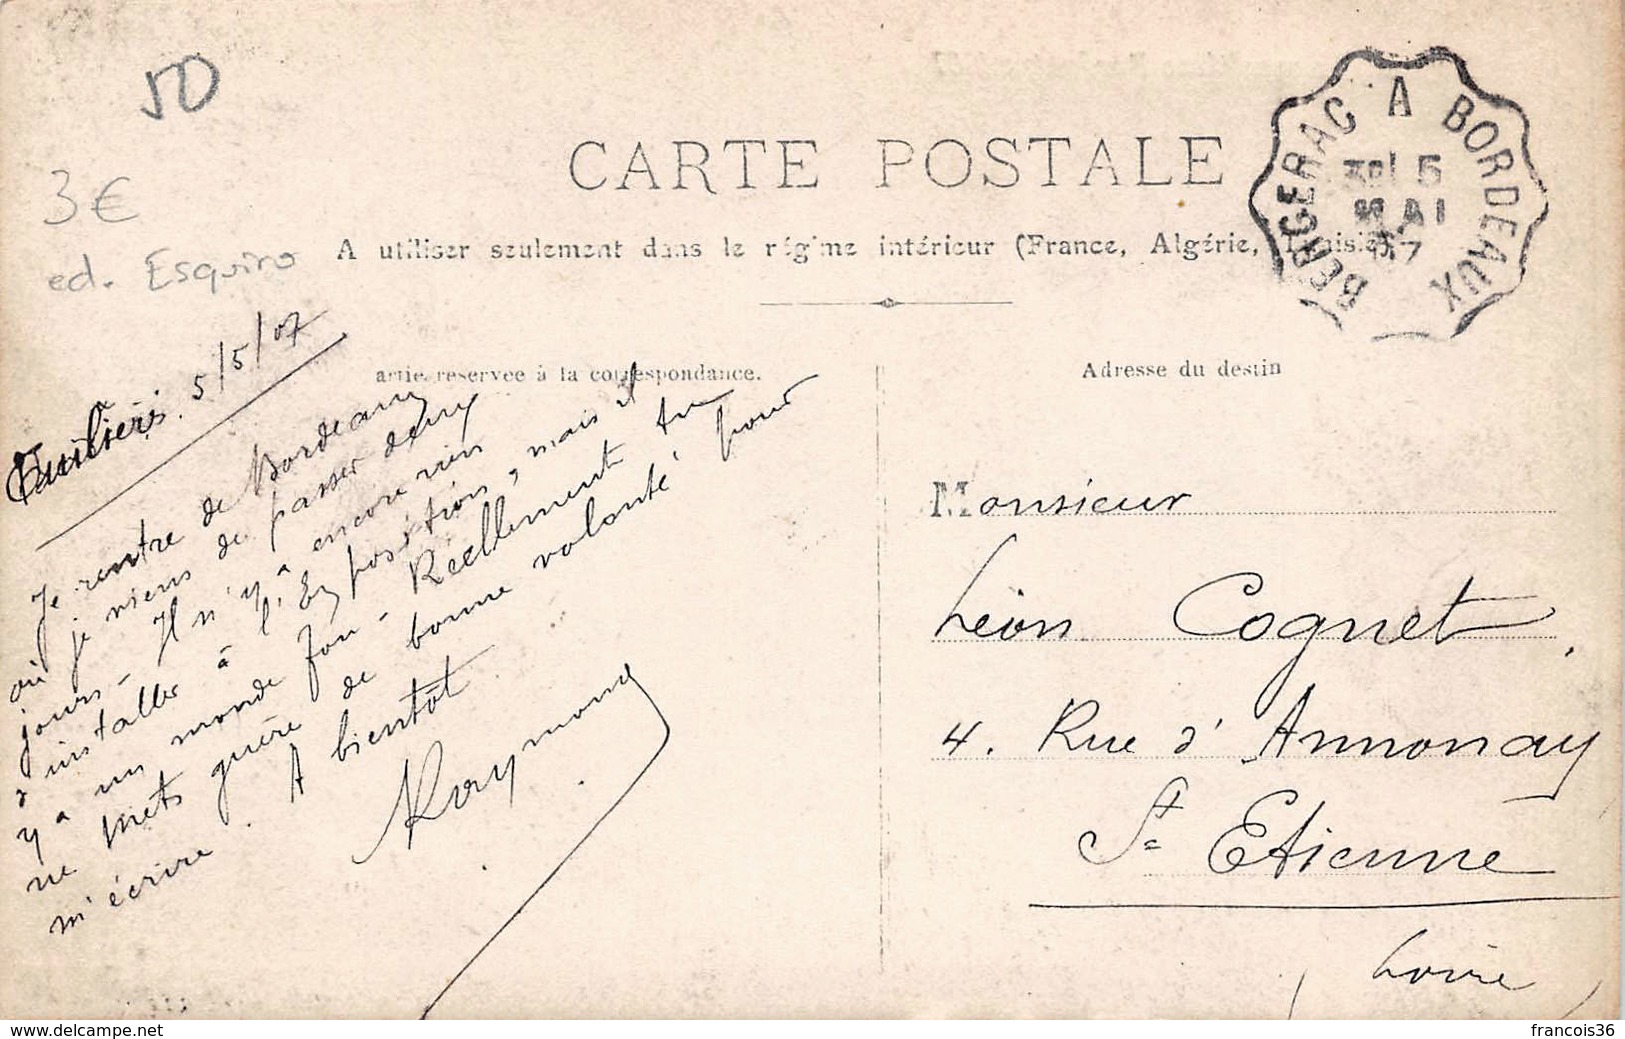 50
3€
ed. Esquiro
CARTE POSTALE
A utiliser seulement dans le régime intérieur (France, Algérie, Tunisie).
BERGERAC A BORDEAUX
5
MAI
07
artie reservee à la correspondance.
Adresse du destin
Tuilières. 5/5/07
Je rentre de Bordeaux
où je viens de passer deux
jours - Il n'y a encore rien
d'installer à l'Exposition, mais il
y a un monde fou - Réellement tu
ne mets guère de bonne volonté pour
m'écrire. A bientôt
Raymond
Monsieur
Léon Cognet.
4. Rue d'Annonay
St Etienne
(Loire)
www.delcampe.net
francois36